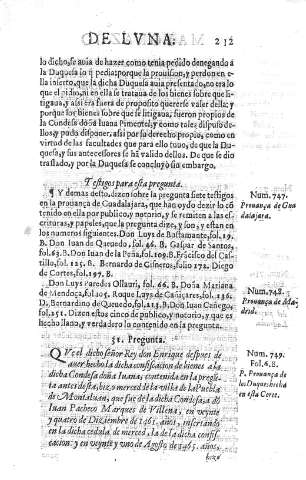 DE LVNA. 212
lo dicho, se auia de hazer como tenia pedido denegando a
la Duquesa lo q̃ pedia; porque la prouision, y perdon en e-
lla inserto, que la dicha Duquesa auia presentado, no era lo
que el pidio, ni en ella se trataua de los bienes sobre que li-
tigaua, y assi era fuera de proposito quererse valer della; y
porque los bienes sobre que se litigaua, fueron propios de
la Condesa doña Iuana Pimentel, y como tales dispuso de-
llos, y pudo disponer, assi por su derecho propio, como en
virtud de las facultades que para ello tuuo, de que la Du-
quesa, y sus antecessores se há valido dellos. De que se dio
traslado, y por la Duquesa se concluyò sin embargo.
Testigos para esta pregunta.
¶ Y demas desto, dizen sobre la pregunta siete testigos
en la prouança de Guadalajara, que han oydo dezir lo có-
tenido en ella por publico, y notorio, y se remiten a las es-
crituras, y papeles, que la pregunta dize, y son, y estan en
los numeros siguientes. Don Luys de Bustamante, fol. 19.
B. Don Iuan de Quevedo, fol. 46. B. Gaspar de Santos,
fol. 63. B. Don Iuan de la Peña, fol. 109. B. Frácisco del Ca-
stillo, fol. 125. B. Bernardo de Cisneros, folio 172. Diego
de Cortes, fol. 197. B.
Num. 747.
Prouança de Gua
dalajara.
Don Luys Paredes Ollauri, fol. 66. B. Doña Mariana
de Mendoça, fol. 105. Roque Luys de Cañizares, fol. 136.
D. Bernardino de Quevedo, fol. 213. B. Don Iuan Cañego,
fol. 251. Dizen estos cinco de publico, y notorio, y que es
hecho llano, y verdadero lo contenido en la pregunta.
Num. 748.
Prouança de Ma
drid.
31. Pregunta.
QVe el dicho señor Rey don Enrique despues de
auer hecho la dicha confiscacion de bienes a la
dicha Condesa doña Iuana, contenida en la pregũ
ta antes desta, hizo merced de la villa de la Puebla
de Montaluan, que fue de la dicha Condesa, a dõ
Iuan Pacheco Marques de Villena, en veynte
y quatro de Diziembre de 1461. años, insertando
en la dicha merced, la de la dicha confisca-
cion: y en veynte y vno de Agosto de 1465. años,
hizo
Num. 749.
Fol. 6. B.
P. Prouança de
la Duquesa hecha
en esta Corte.